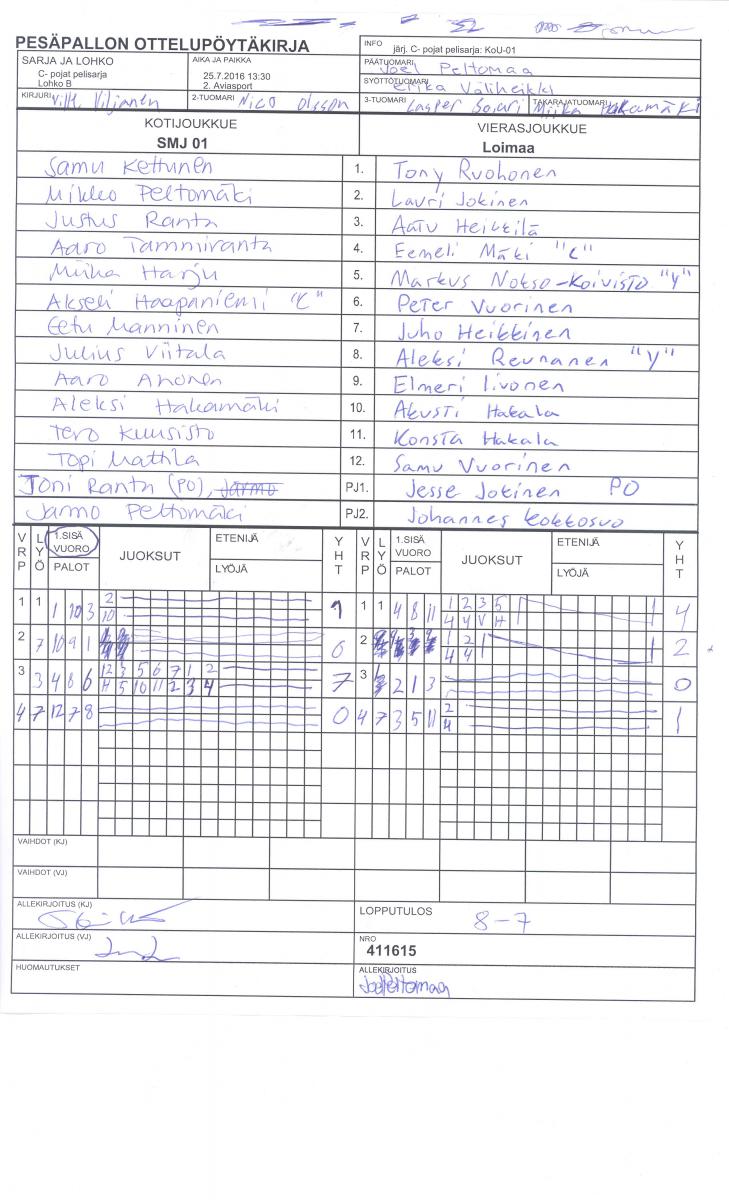 PESÄPALLON OTTELUPÖYTÄKIRJA
INFO
järj. C- pojat pelisarja: KoU-01
SARJA JA LOHKO
C- pojat pelisarja
Lohko B
AIKA JA PAIKKA
25.7.2016 13:30
2. Aviasport
PÄÄTUOMARI Joel Peltomaa
SYÖTTÖTUOMARI Erika Väliheikki
KIRJURI Ville Viljanen
2-TUOMARI Nico Olsson
3-TUOMARI
TAKARAJATUOMARI Miika Hakamäki
KOTIJOUKKUE
SMJ 01
VIERASJOUKKUE
Loimaa
Samu Kettunen 1. Tony Ruohonen
Mikko Peltomäki 2. Lauri Jokinen
Justus Ranta 3. Aatu Heikkilä
Aaro Tammiranta 4. Eemeli Mäki "C"
Miika Harju 5. Markus Nokso-Koivisto "Y"
Akseli Haapaniemi "C" 6. Peter Vuorinen
Eetu Manninen 7. Juho Heikkinen
Julius Viitala 8. Aleksi Reunanen "Y"
Aaro Ahonen 9. Elmeri Iivonen
Aleksi Hakamäki 10. Akusti Hakala
Tero Kuusisto 11. Konsta Hakala
Topi Mattila 12. Samu Vuorinen
Toni Ranta (PO), Jarmo PJ1. Jesse Jokinen PO
Jarmo Peltomäki PJ2. Johannes Kokkosuo
VRP LYÖ 1.SISÄ VUORO PALOT JUOKSUT ETENIJÄ LYÖJÄ YHT VRP LYÖ 1.SISÄ VUORO PALOT JUOKSUT ETENIJÄ LYÖJÄ YHT
1 1 1 10 3 2 1 1 1 4 8 11 1 2 3 5 4
10 4 4 V H
2 7 10 9 1 0 2 1 2 2
4 4
3 3 4 8 6 12 3 5 6 7 1 2 7 3 2 1 3 0
H 5 10 11 2 3 4
4 7 12 7 8 0 4 7 3 5 11 2 1
4
VAIHDOT (KJ)
VAIHDOT (VJ)
ALLEKIRJOITUS (KJ)
LOPPUTULOS
8-7
ALLEKIRJOITUS (VJ)
NRO
411615
HUOMAUTUKSET
ALLEKIRJOITUS
Joel Peltomaa